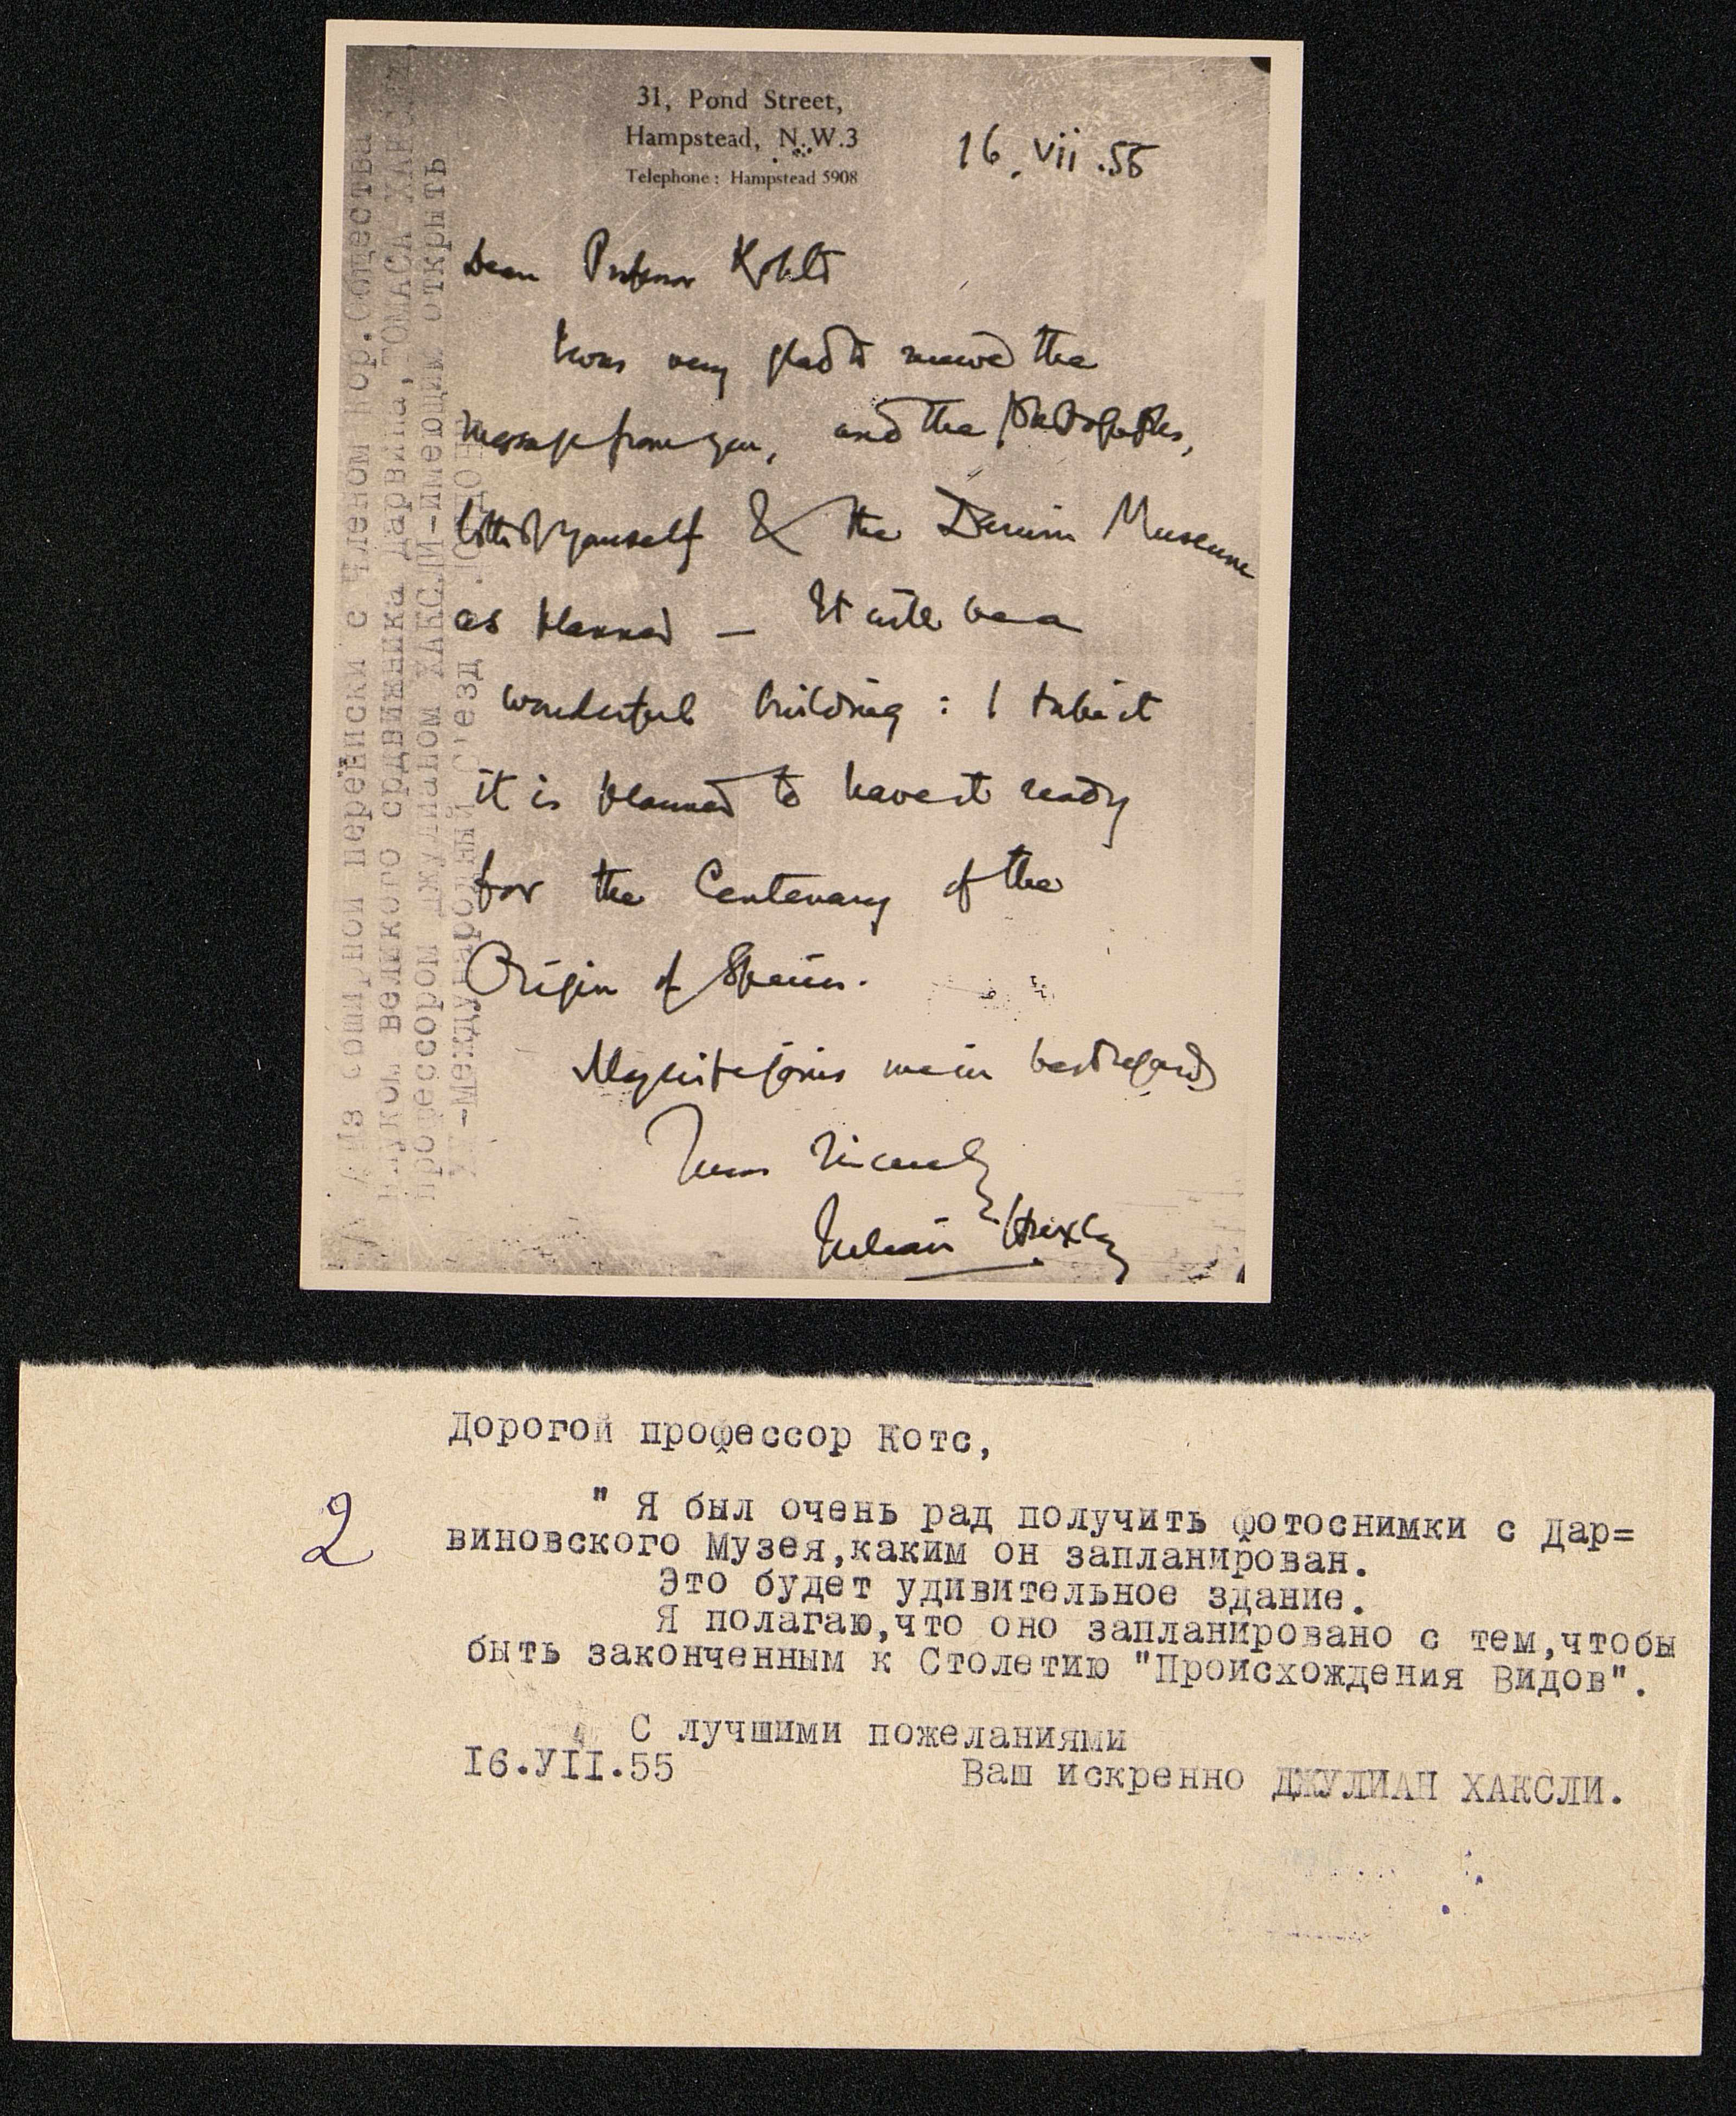 31, Pond Street,
Hampstead, N.W.3
Telephone: Hampstead 5908
16.vii.55
Dear Professor Kohts
I was very glad to receive the
message from you, and the photographs,
both of yourself & the Darwin Museum
as planned — It will be a
wonderful building: I take it
it is planned to have it ready
for the Centenary of the
Origin of Species.
My wife joins me in best regards
Yours sincerely
Julian Huxley
Из обширной переписки с Членом Кор.Общества
внуком великого сподвижника Дарвина, ТОМАСА
профессором ДЖУЛИАНОМ ХАКСЛИ-имеющим открыть
-Международный С'езд
Дорогой профессор Котс,
2
" Я был очень рад получить фотоснимки с Дар=
виновского Музея,каким он запланирован.
Это будет удивительное здание.
Я полагаю,что оно запланировано с тем,чтобы
быть законченным к Столетию "Происхождения Видов".
С лучшими пожеланиями
I6.УII.55 Ваш искренно ДЖУЛИАН ХАКСЛИ.